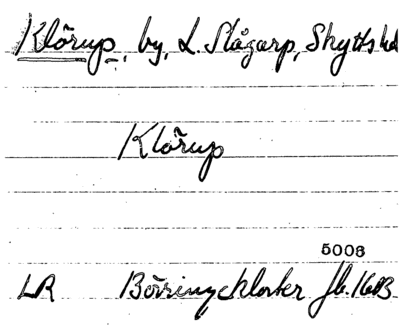 Klörup, by, L. Slågarp, Skytts hd
Klörup
5008
LR Börringekloster Jb. 1683